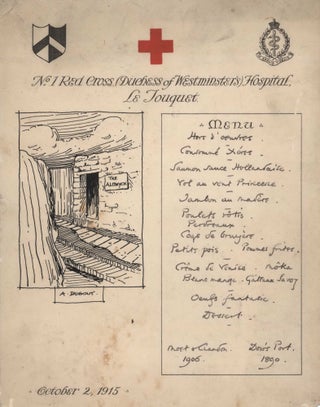 No 1 Red Cross (Duchess of Westminster's) Hospital.
Le Touquet
THE ALDWYCH
A DUGOUT.
Menu
Hors d'oeuvres
Consommé Xérès.
Saumon sauce Hollandaise.
Vol au vent Princesse
Jambon au madère.
Poulets rôtis
Perdreaux
Coqs de bruyère.
Petits pois. Pommes frites.
Crème de Venise. Môka
Blanc mange. Gateau Savoy
Oeufs
Dessert.
Moet & Chandon Dow's Port.
1906. 1890.
October 2, 1915